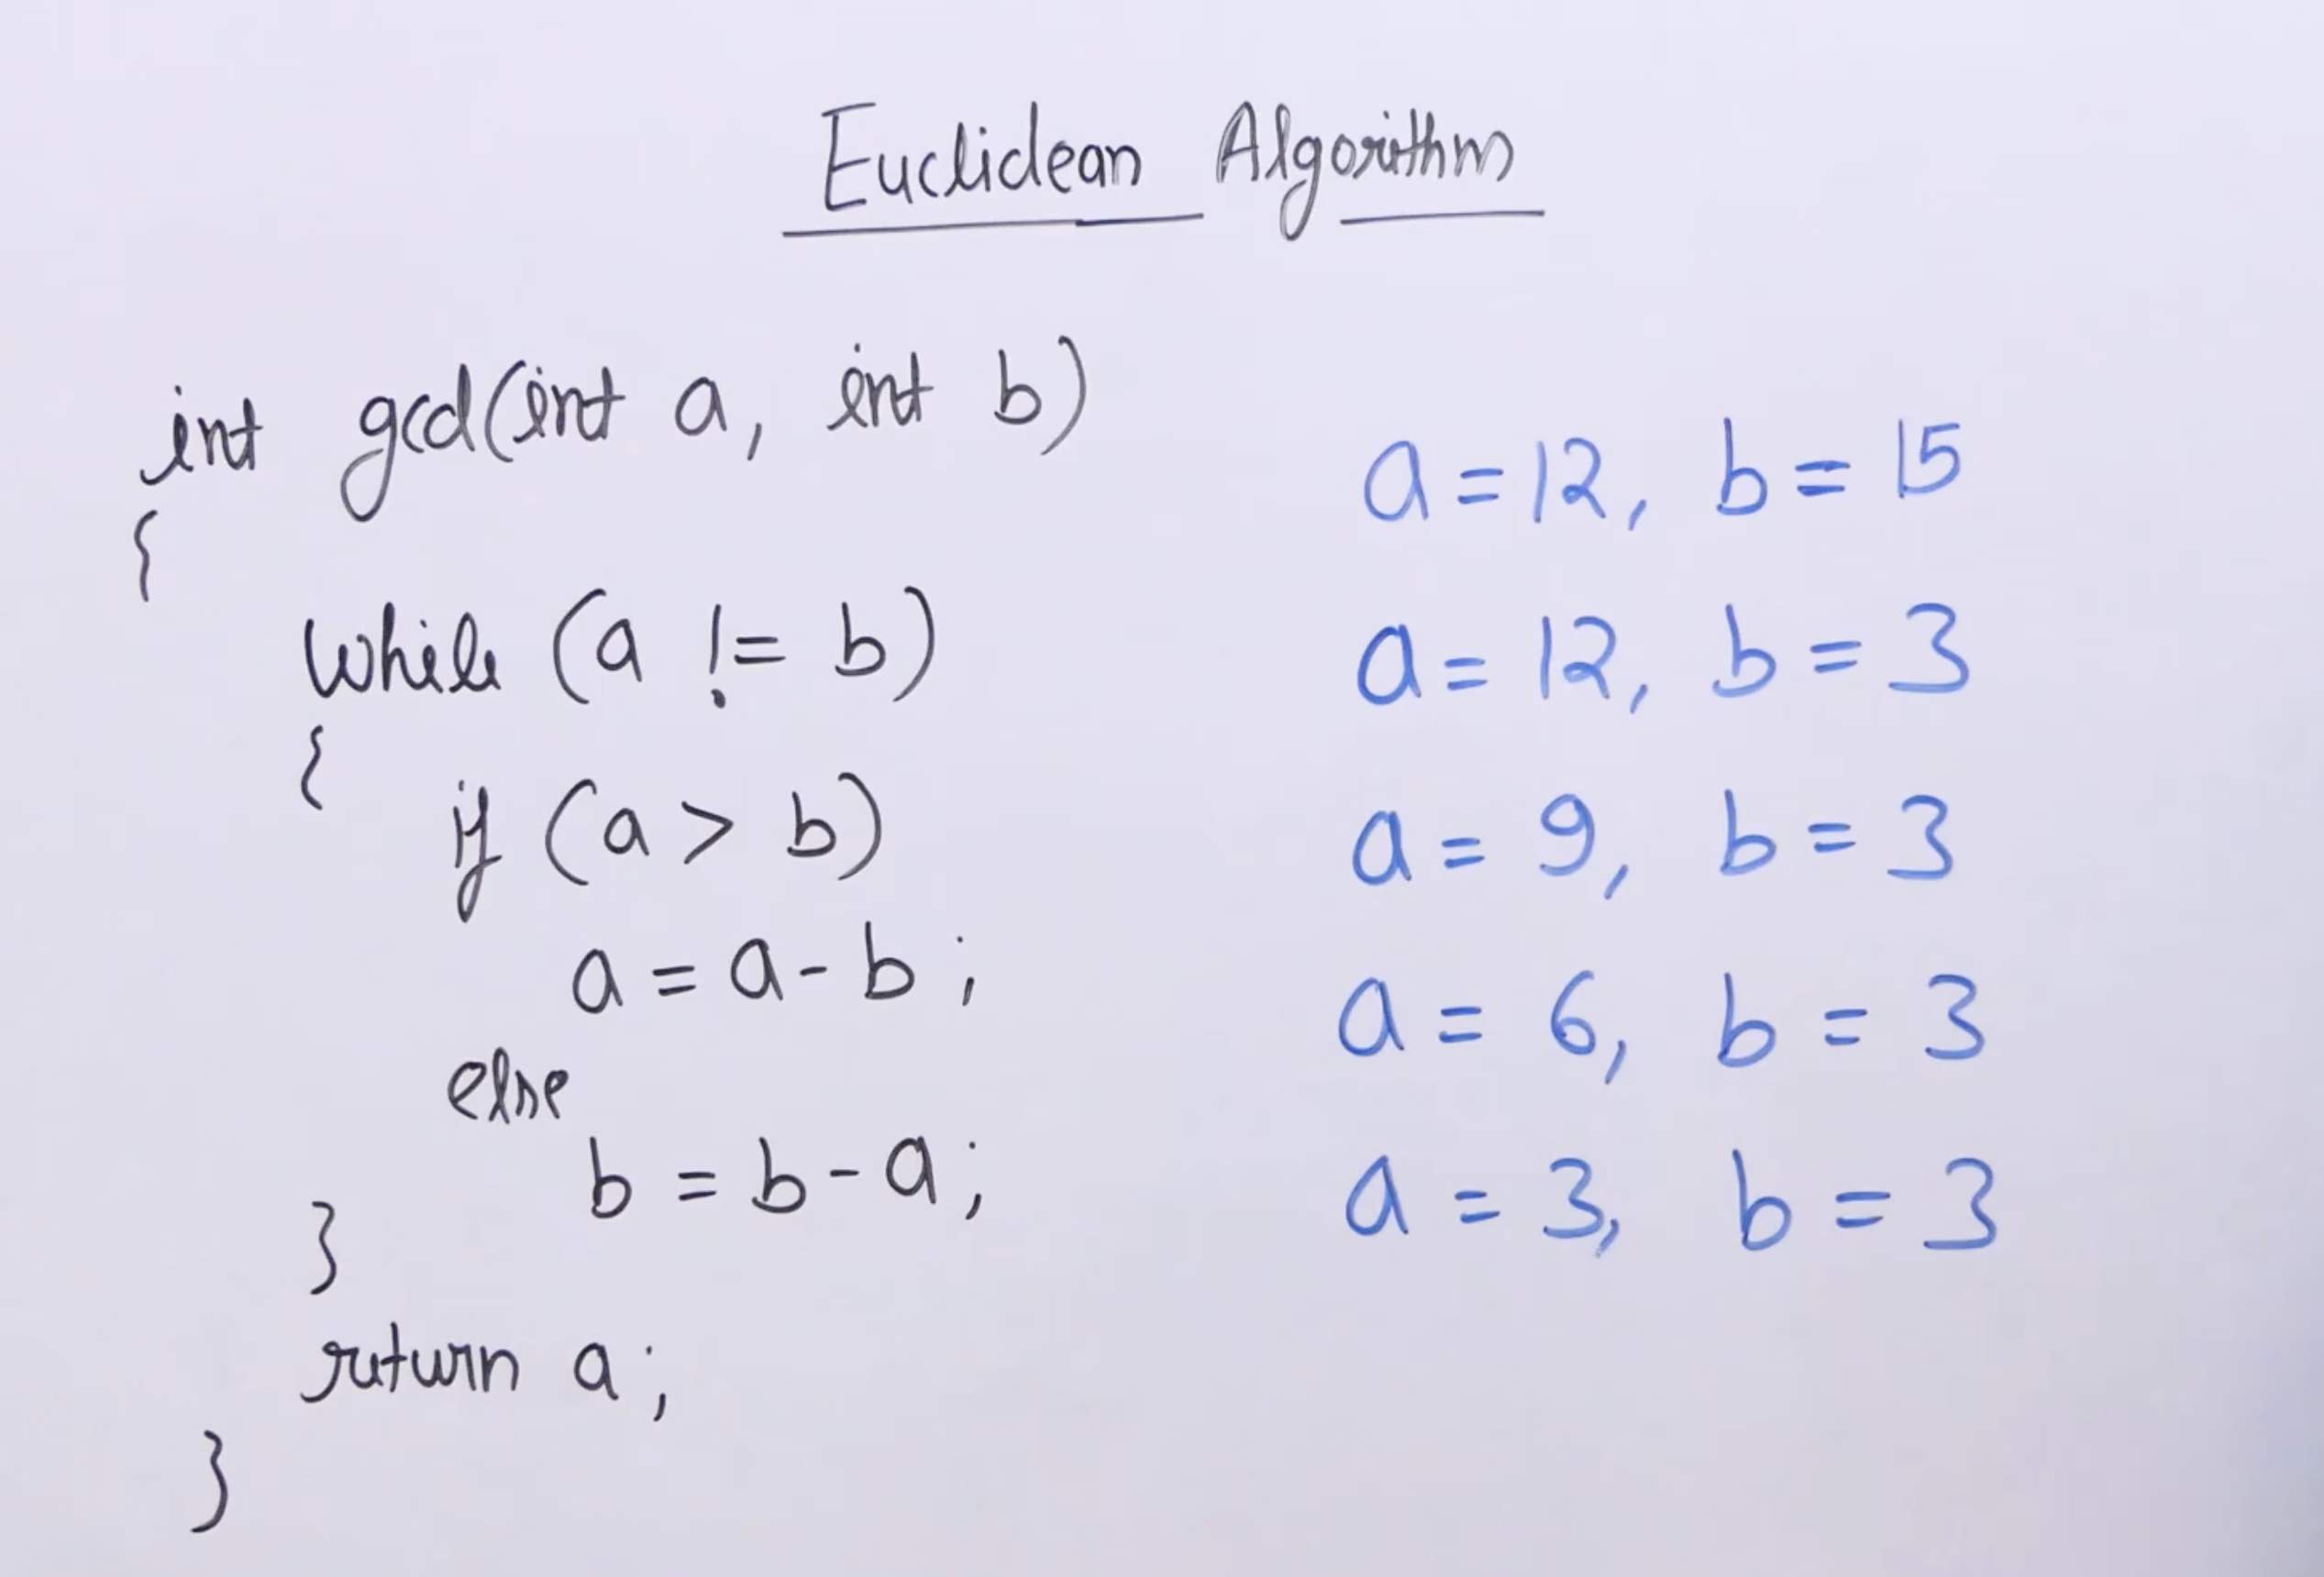 Euclidean Algorithm
int gcd(int a, int b)
{
while (a != b)
{
if (a > b)
a = a - b;
else
b = b - a;
}
return a;
}
a = 12, b = 15
a = 12, b = 3
a = 9, b = 3
a = 6, b = 3
a = 3, b = 3